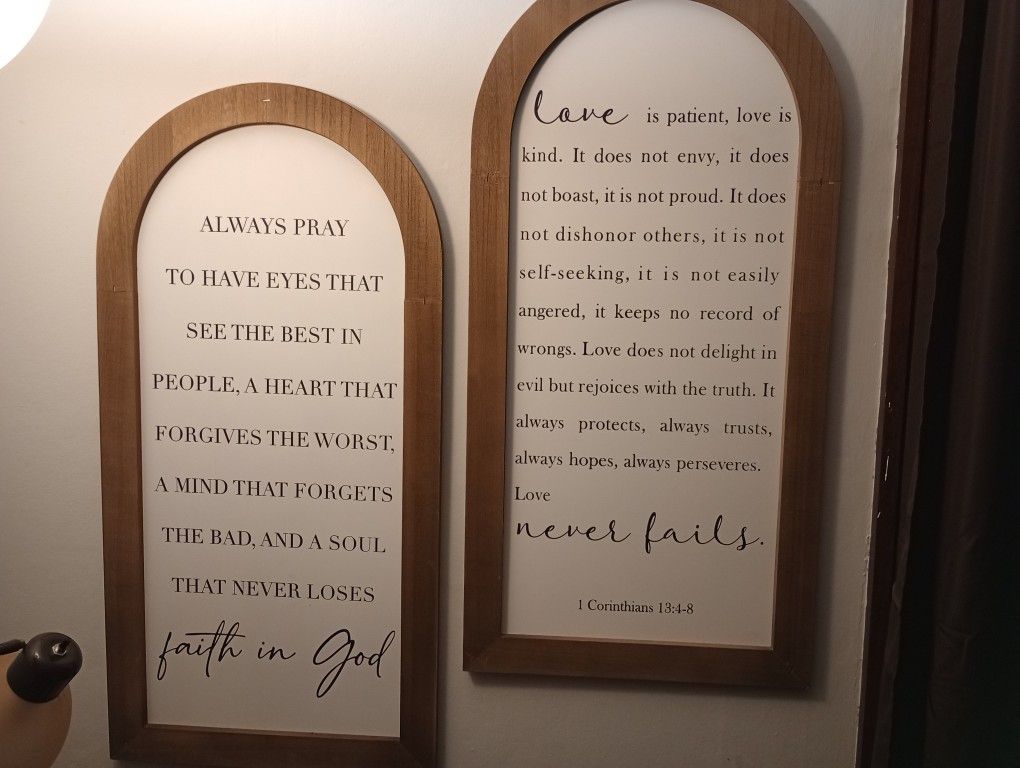 ALWAYS PRAY
TO HAVE EYES THAT
SEE THE BEST IN
PEOPLE, A HEART THAT
FORGIVES THE WORST,
A MIND THAT FORGETS
THE BAD, AND A SOUL
THAT NEVER LOSES
faith in God
love is patient, love is
kind. It does not envy, it does
not boast, it is not proud. It does
not dishonor others, it is not
self-seeking, it is not easily
angered, it keeps no record of
wrongs. Love does not delight in
evil but rejoices with the truth. It
always protects, always trusts,
always hopes, always perseveres.
Love
never fails.
1 Corinthians 13:4-8